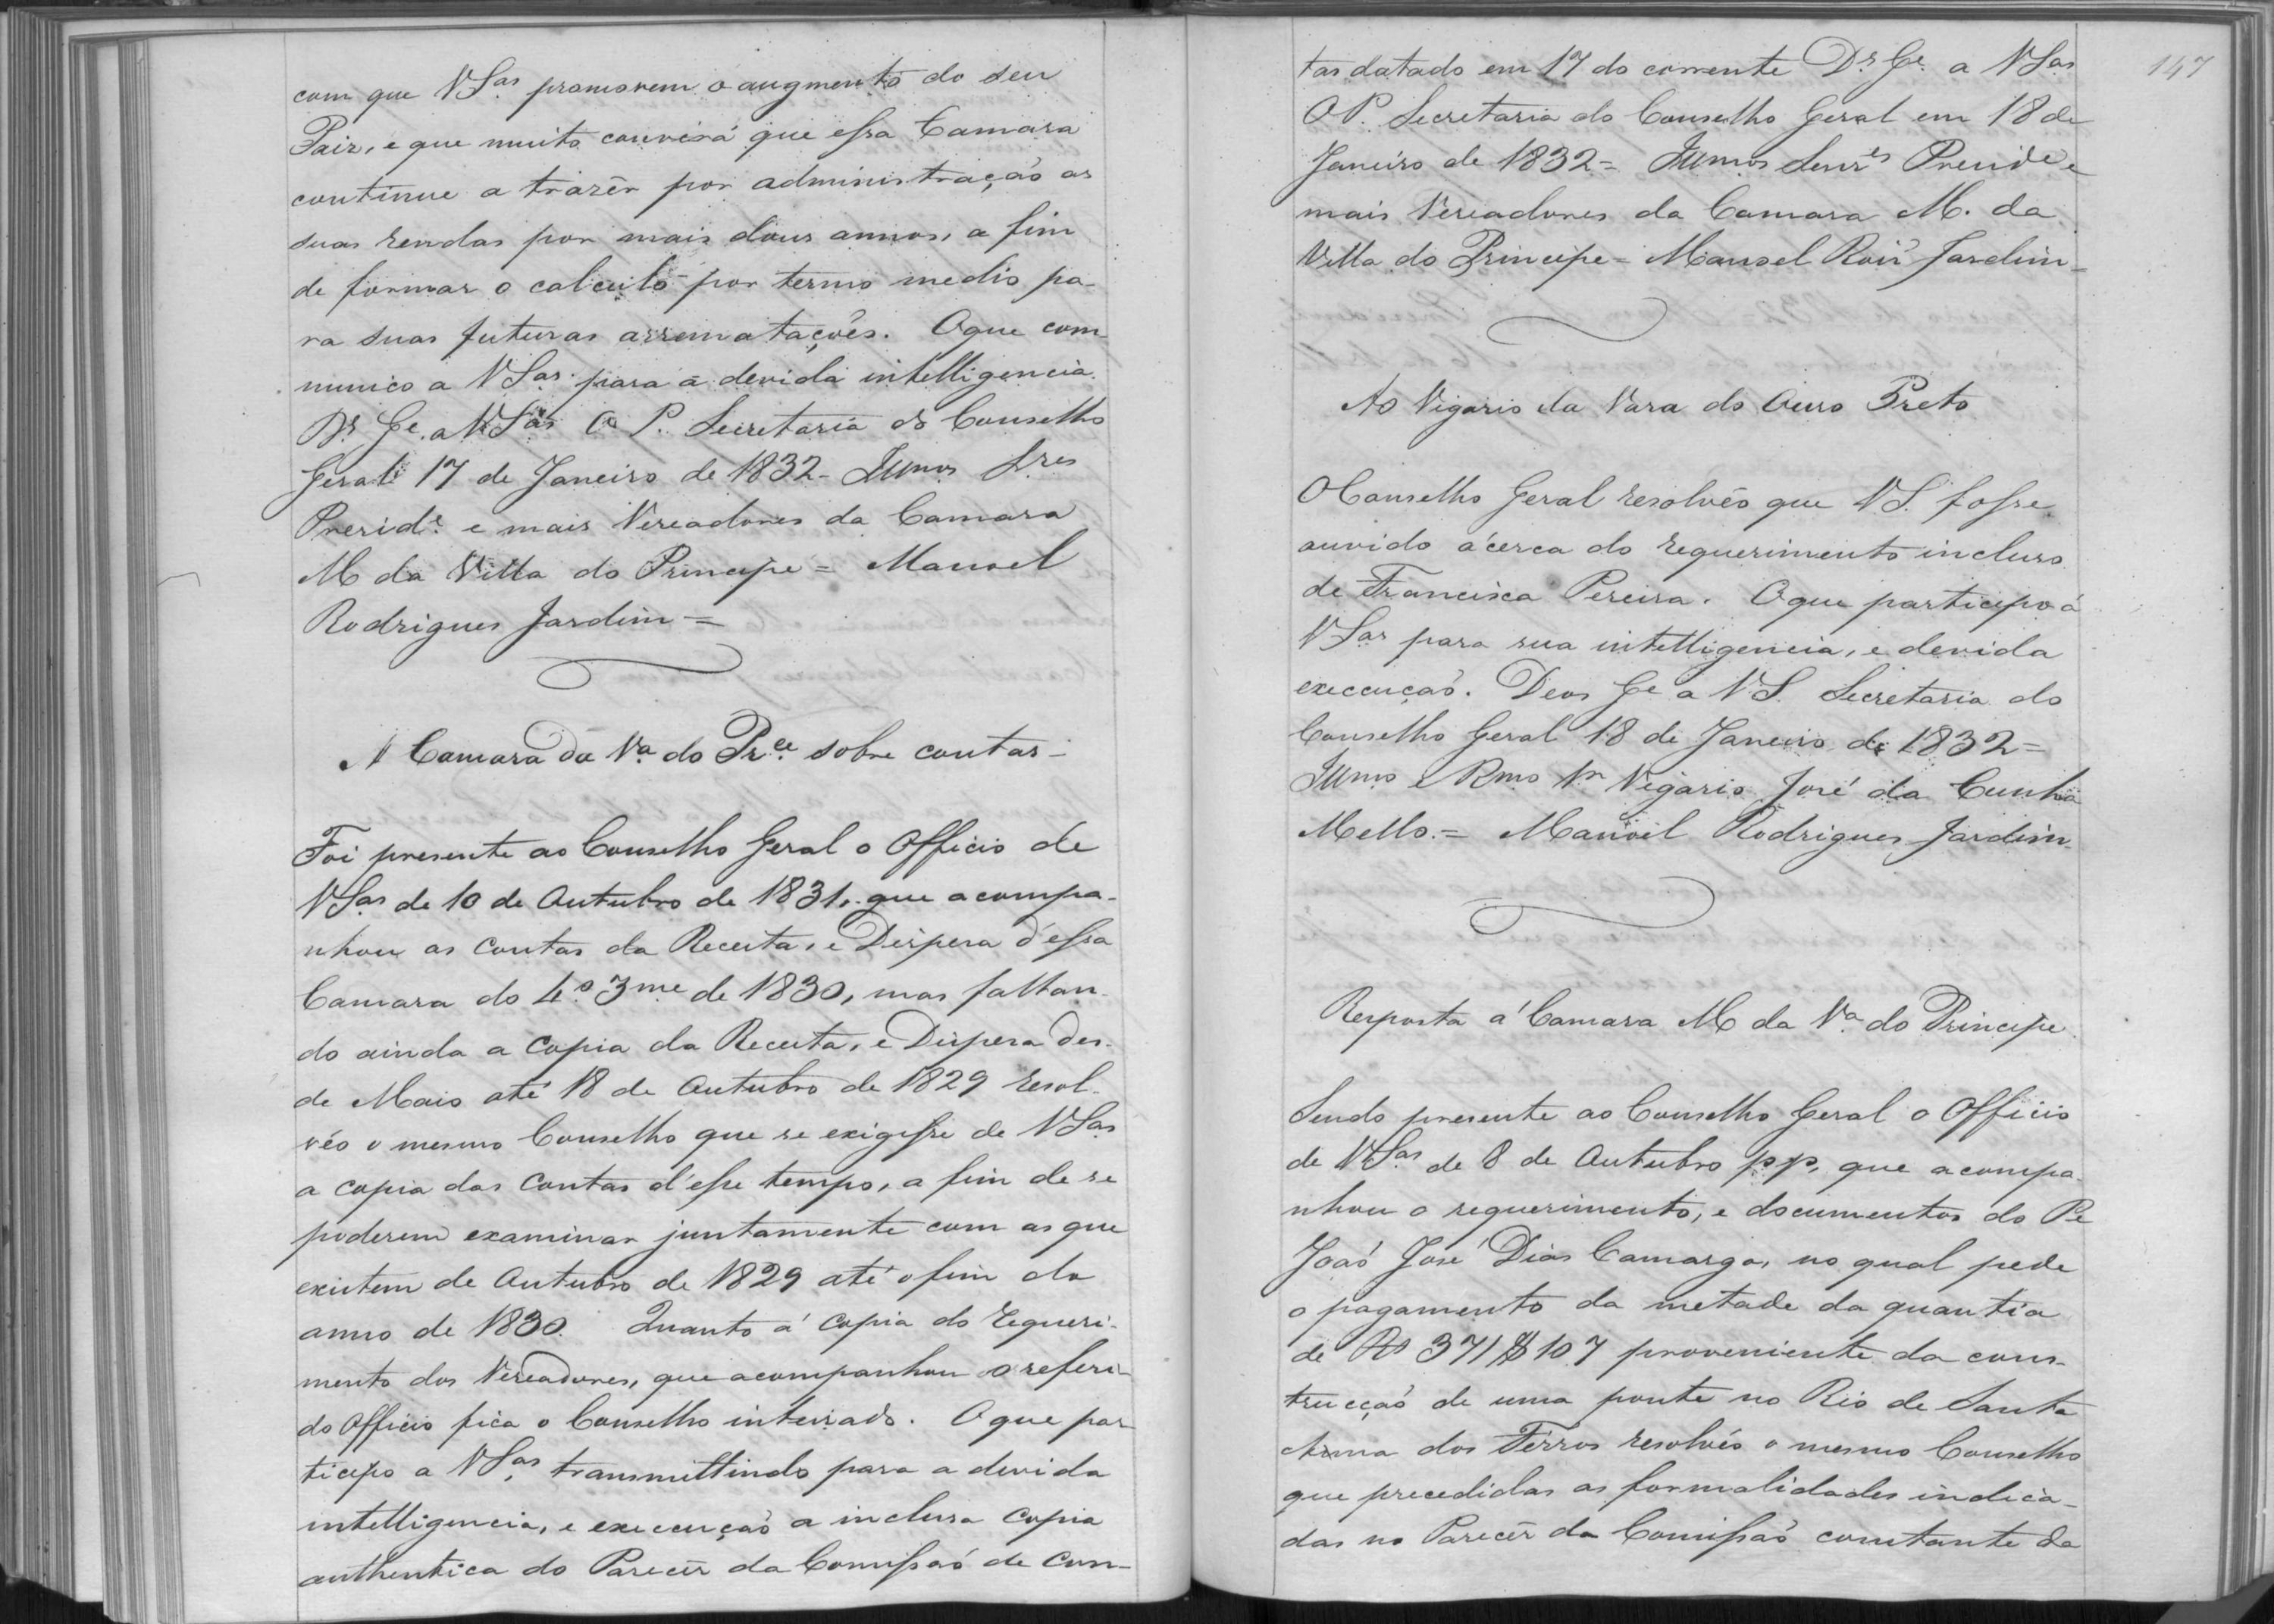 com que VSas promovem o augmento do seu
Paiz, e que muito convirá que essa Camara
continue a trazêr por administração as
suas rendas por mais dous annos, a fim
de formar o calculo por termo medio pa-
ra suas futuras arrematações. Oque com-
munico a VSas para a devida intelligencia.
Ds. Ge. a VSas O P. Secretaria do Conselho
Geral 17 de Janeiro de 1832 - Illmos Sres
Preside. e mais Vereadores da Camara
M da Villa do Principe = Manoel
Rodrigues Jardim =
A Camara da Va. do Prce. sobre contas -
Foi presente ao Conselho Geral o Officio de
VSas de 10 de Outubro de 1831, que acompa-
nhou as contas da Receita, e Dispeza d'essa
Camara do 4.º 3me de 1830, mas faltan-
do ainda a copia da Receita, e Dispeza des-
de Maio até 18 de Outubro de 1829 resol-
vêo o mesmo Conselho que se exigisse de VSas
a copia das contas d'esse tempo, a fim de se
poderem examinar juntamente com as que
existem de Outubro de 1829 até o fim do
anno de 1830. Quanto á copia do requeri-
mento dos Vereadores, que acompanhou o referi-
do Officio fica o Conselho inteirado. Oque par-
ticipo a VSas transmittindo para a devida
intelligencia, e execução a inclusa copia
authentica do Parecêr da Comissaõ de Con-
147
tas datado em 17 do corrente Ds. Ge. a VSas
OP. Secretaria do Conselho Geral em 18 de
Janeiro de 1832 = Illmos Senres Preside e
mais Vereadores da Camara M. da
Villa do Principe = Manoel Roiz Jardim =
Ao Vigario da Vara do Ouro Preto
O Conselho Geral resolvêo que VS. fosse
ouvido ácerca do requerimento incluso
de Francisca Pereira. Oque participo á
VSas para sua intelligencia, e devida
execcução. Deos Ge a VS. Secretaria do
Conselho Geral 18 de Janeiro de 1832 =
Illmo e Rmo Sr Vigario José da Cunha
Mello. = Manoel Rodrigues Jardim.
Resposta á Camara M da Va do Principe.
Sendo presente ao Conselho Geral o Officio
de VSas de 8 de Outubro pp, que acompa-
nhou o requerimento, e documentos do Pe
Joaõ José Dias Camargo, no qual pede
o pagamento da metade da quantia
de Rs 371$107 proveniente da cons-
trucçaõ de uma ponte no Rio de Santa
Anna dos Férros resolvêo o mesmo Conselho
que precedidas as formalidades indica-
das no Parecêr da Comissaõ constante da